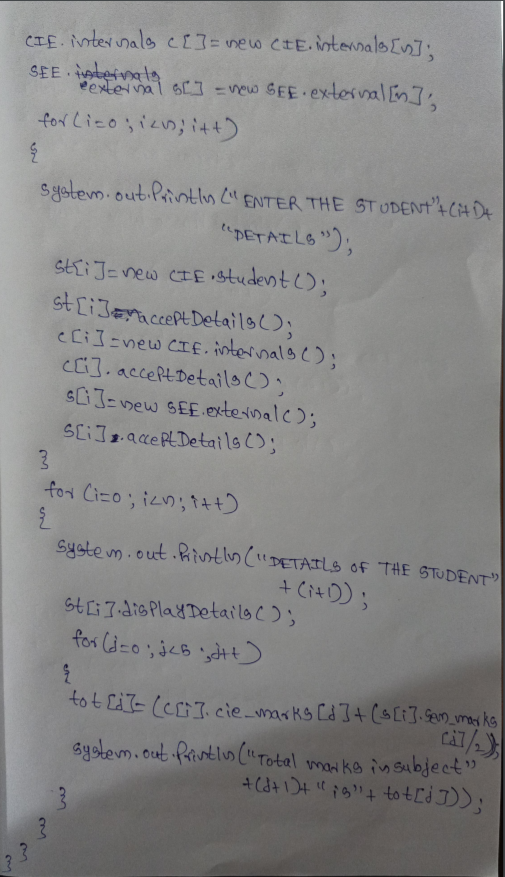 CIE.internals c[]=new CIE.internals[n];
SEE.internals
external s[] =new SEE.external[n];
for(i=0;i<n;i++)
{
system.out.Println("ENTER THE STUDENT"+(i+1)+
"DETAILS");
st[i]=new CIE.student();
st[i].acceptDetails();
c[i]=new CIE.internals();
c[i].acceptDetails();
s[i]=new SEE.external();
s[i].acceptDetails();
}
for(i=0;i<n;i++)
{
system.out.Println("DETAILS OF THE STUDENT"
+(i+1));
st[i].displayDetails();
for(j=0;j<5;j++)
{
tot[j]=(c[i].cie_marks[j]+(s[i].sem_marks
[j]/2));
system.out.Println("Total marks in subject"
+(j+1)+"is"+tot[j]));
}
}
} }